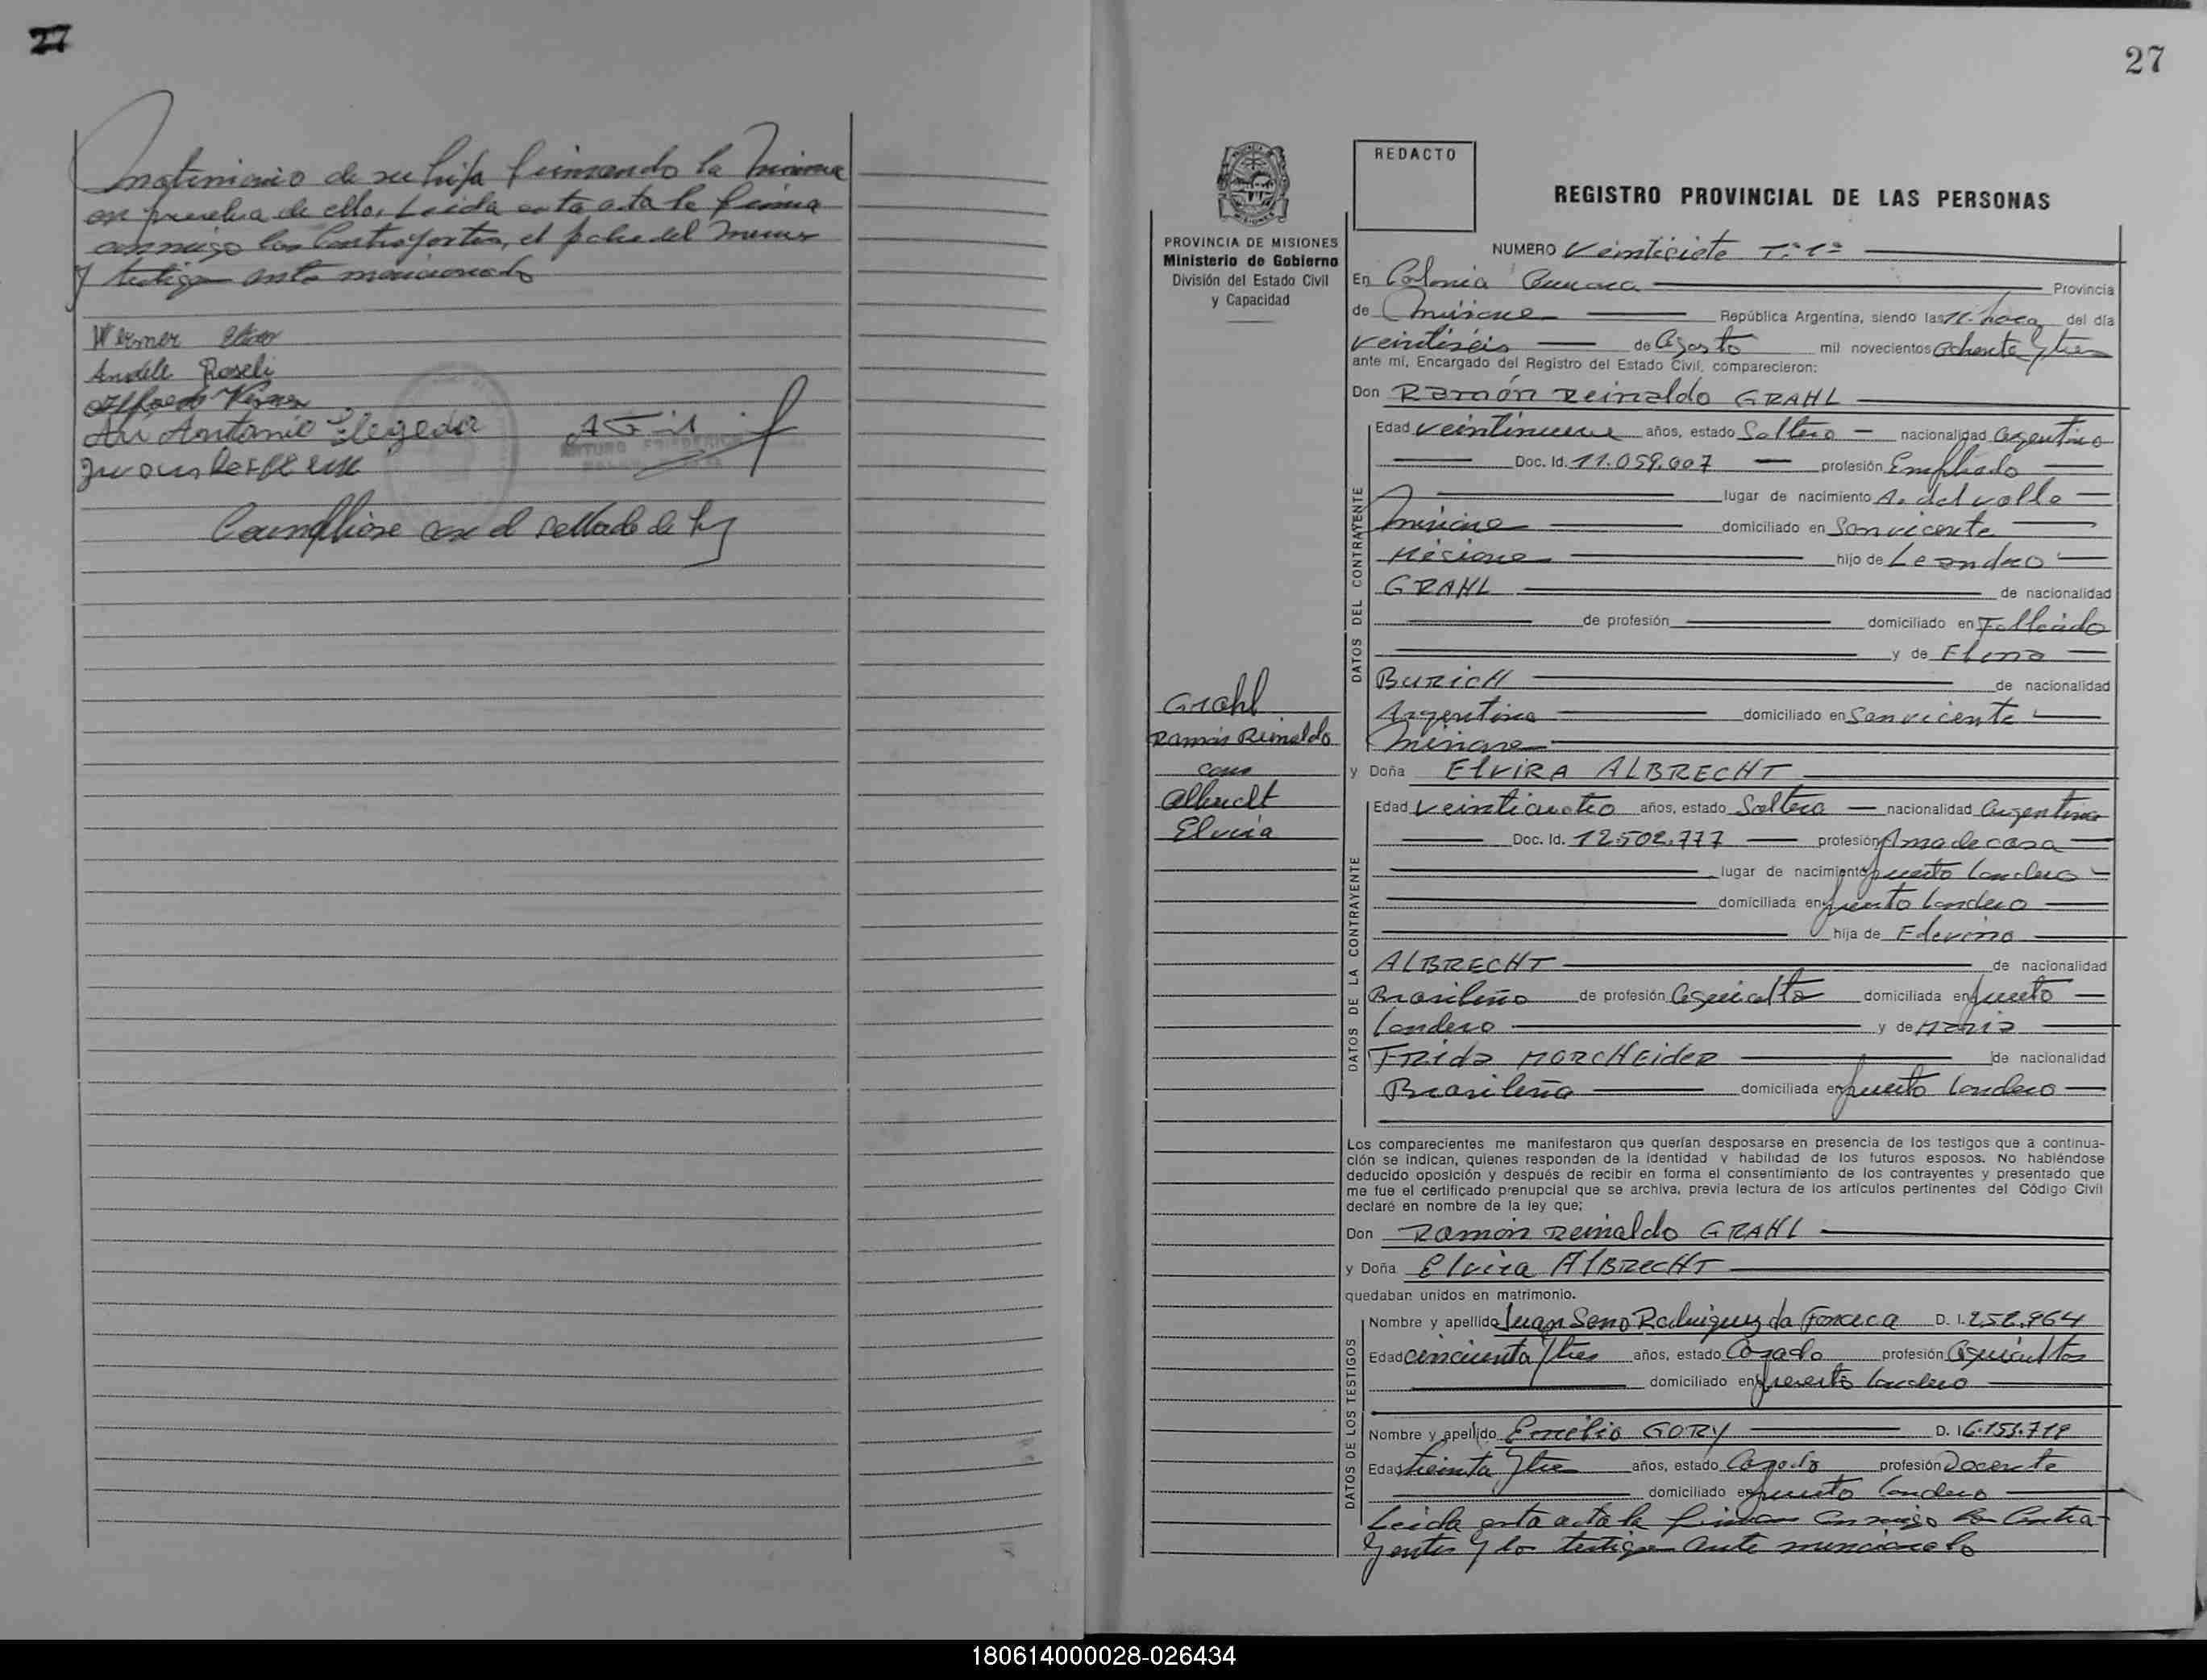 27
matrimonio de su hija firmando la misma
en prueba de ello, Leida esta acta la firma
conmigo los Contrayentes, el padre del menor
y testigo ante mencionado
Werner
Anéle Roseli
Antonio
Cumpliose con el sellado de ley
27
REDACTO
REGISTRO PROVINCIAL DE LAS PERSONAS
PROVINCIA DE MISIONES
Ministerio de Gobierno
División del Estado Civil
y Capacidad
NUMERO Veintisiete T.º 1º
En Colonia Provincia
de Misiones República Argentina, siendo las 11 horas del día
veintiséis de Agosto mil novecientos Ochenta y tres
ante mí, Encargado del Registro del Estado Civil, comparecieron:
Don Ramón Reinaldo GRAHL
Edad veintinueve años, estado Soltero nacionalidad Argentino
Doc. Id. 11.059.007 profesión Empleado
lugar de nacimiento A. del valle
Misiones domiciliado en San vicente
Misiones hijo de Leandro
GRAHL de nacionalidad
de profesión domiciliado en Fallecido
y de Elena
BURICH de nacionalidad
Argentina domiciliado en San vicente
Misiones
DATOS DEL CONTRAYENTE
Grahl
Ramón Reinaldo
con
Albrecht
Elvira
y Doña ElVIRA ALBRECHT
Edad veinticuatro años, estado Soltera nacionalidad Argentina
Doc. Id. 12.502.777 profesión Ama de casa
lugar de nacimiento puerto Londero
domiciliada en puerto Londero
hija de Edevino
ALBRECHT de nacionalidad
Brasileño de profesión Agricultor domiciliada en puerto
Londero y de Maria
FRida MORCHEideR de nacionalidad
Brasileña domiciliada en puerto Londero
DATOS DE LA CONTRAYENTE
Los comparecientes me manifestaron que querían desposarse en presencia de los testigos que a continua-
ción se indican, quienes responden de la identidad y habilidad de los futuros esposos. No habiéndose
deducido oposición y después de recibir en forma el consentimiento de los contrayentes y presentado que
me fue el certificado prenupcial que se archiva, previa lectura de los artículos pertinentes del Código Civil
declaré en nombre de la ley que;
Don Ramón Reinaldo GRAHL
y Doña Elvira AlBRECHT
quedaban unidos en matrimonio.
Nombre y apellido Juan Seno Rodriguez da Fonceca D. I. 252.964
Edad cincuenta y tres años, estado Cazado profesión Agricultor
domiciliado en puerto Londero
Nombre y apellido Emilio GORY D. I 6.153.719
Edad treinta y tres años, estado Cazado profesión Docente
domiciliado en puerto Londero
DATOS DE LOS TESTIGOS
Leida esta acta la firman conmigo los Contra-
yentes y los testigos ante mencionado
180614000028-026434